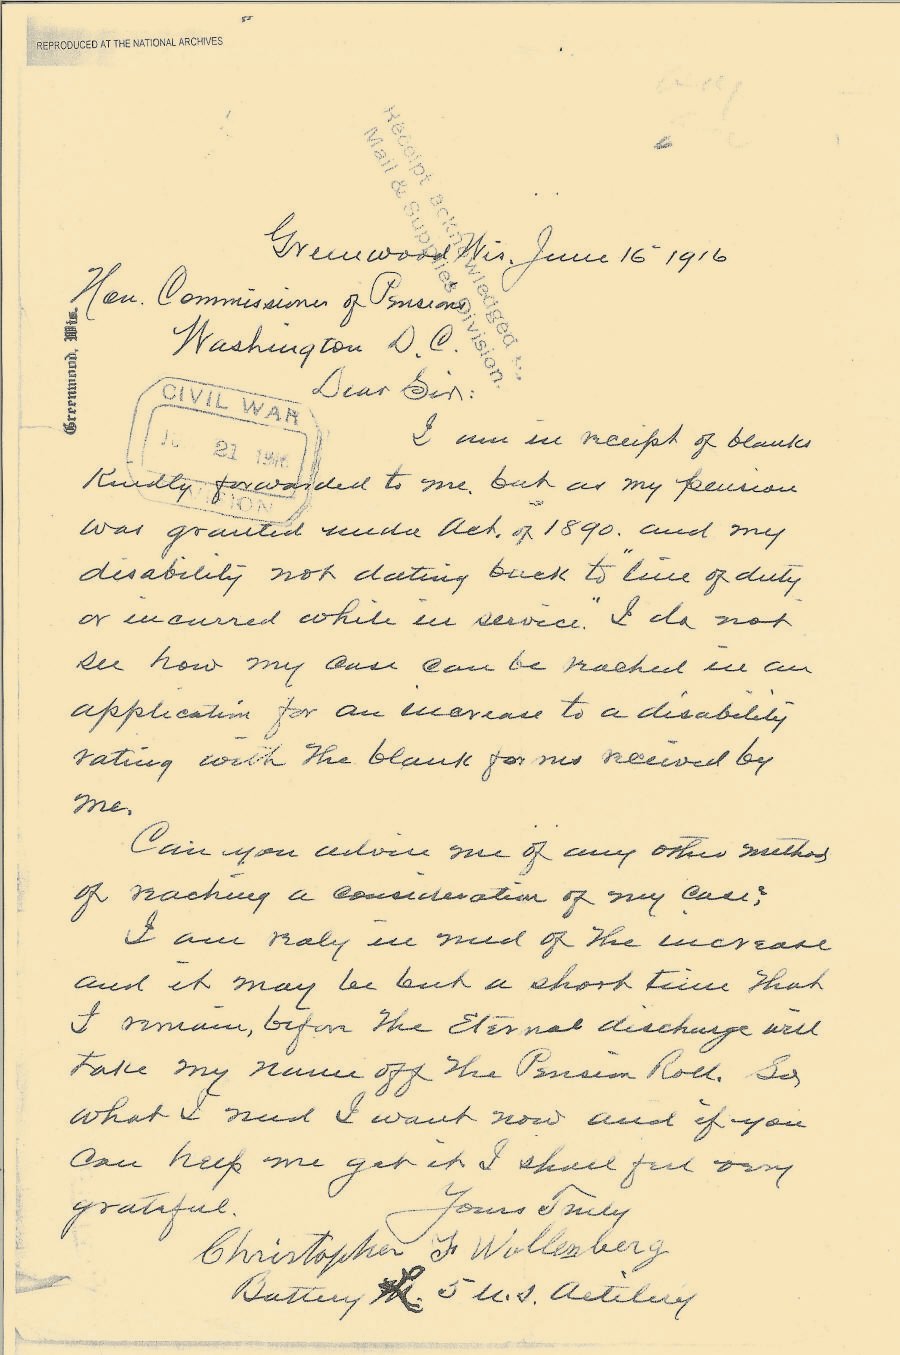 REPRODUCED AT THE NATIONAL ARCHIVES
Receipt acknowledged by
Mail & Supplies Division.
Greenwood Wis. June 15 1916
Hon. Commissioner of Pensions
Greenwood, Wis.
Washington D. C.
Dear Sir:
CIVIL WAR
21
DIVISION
I am in receipt of blanks
kindly forwarded to me. but as my pension
was granted under Act. of 1890. and my
disability not dating back to "line of duty
or incurred while in service." I do not
see how my case can be reached in an
application for an increase to a disability
rating with the blank forms received by
me.
Can you advise me of any other method
of reaching a consideration of my case?
I am realy in need of the increase
and it may be but a short time that
I remain, before the Eternal discharge will
take my name off the Pension Roll. So,
what I need I want now and if you
can help me get it I shall feel very
grateful.
Yours Truly
Christopher F Wollenberg
Battery M. 5 U.S. Artilery